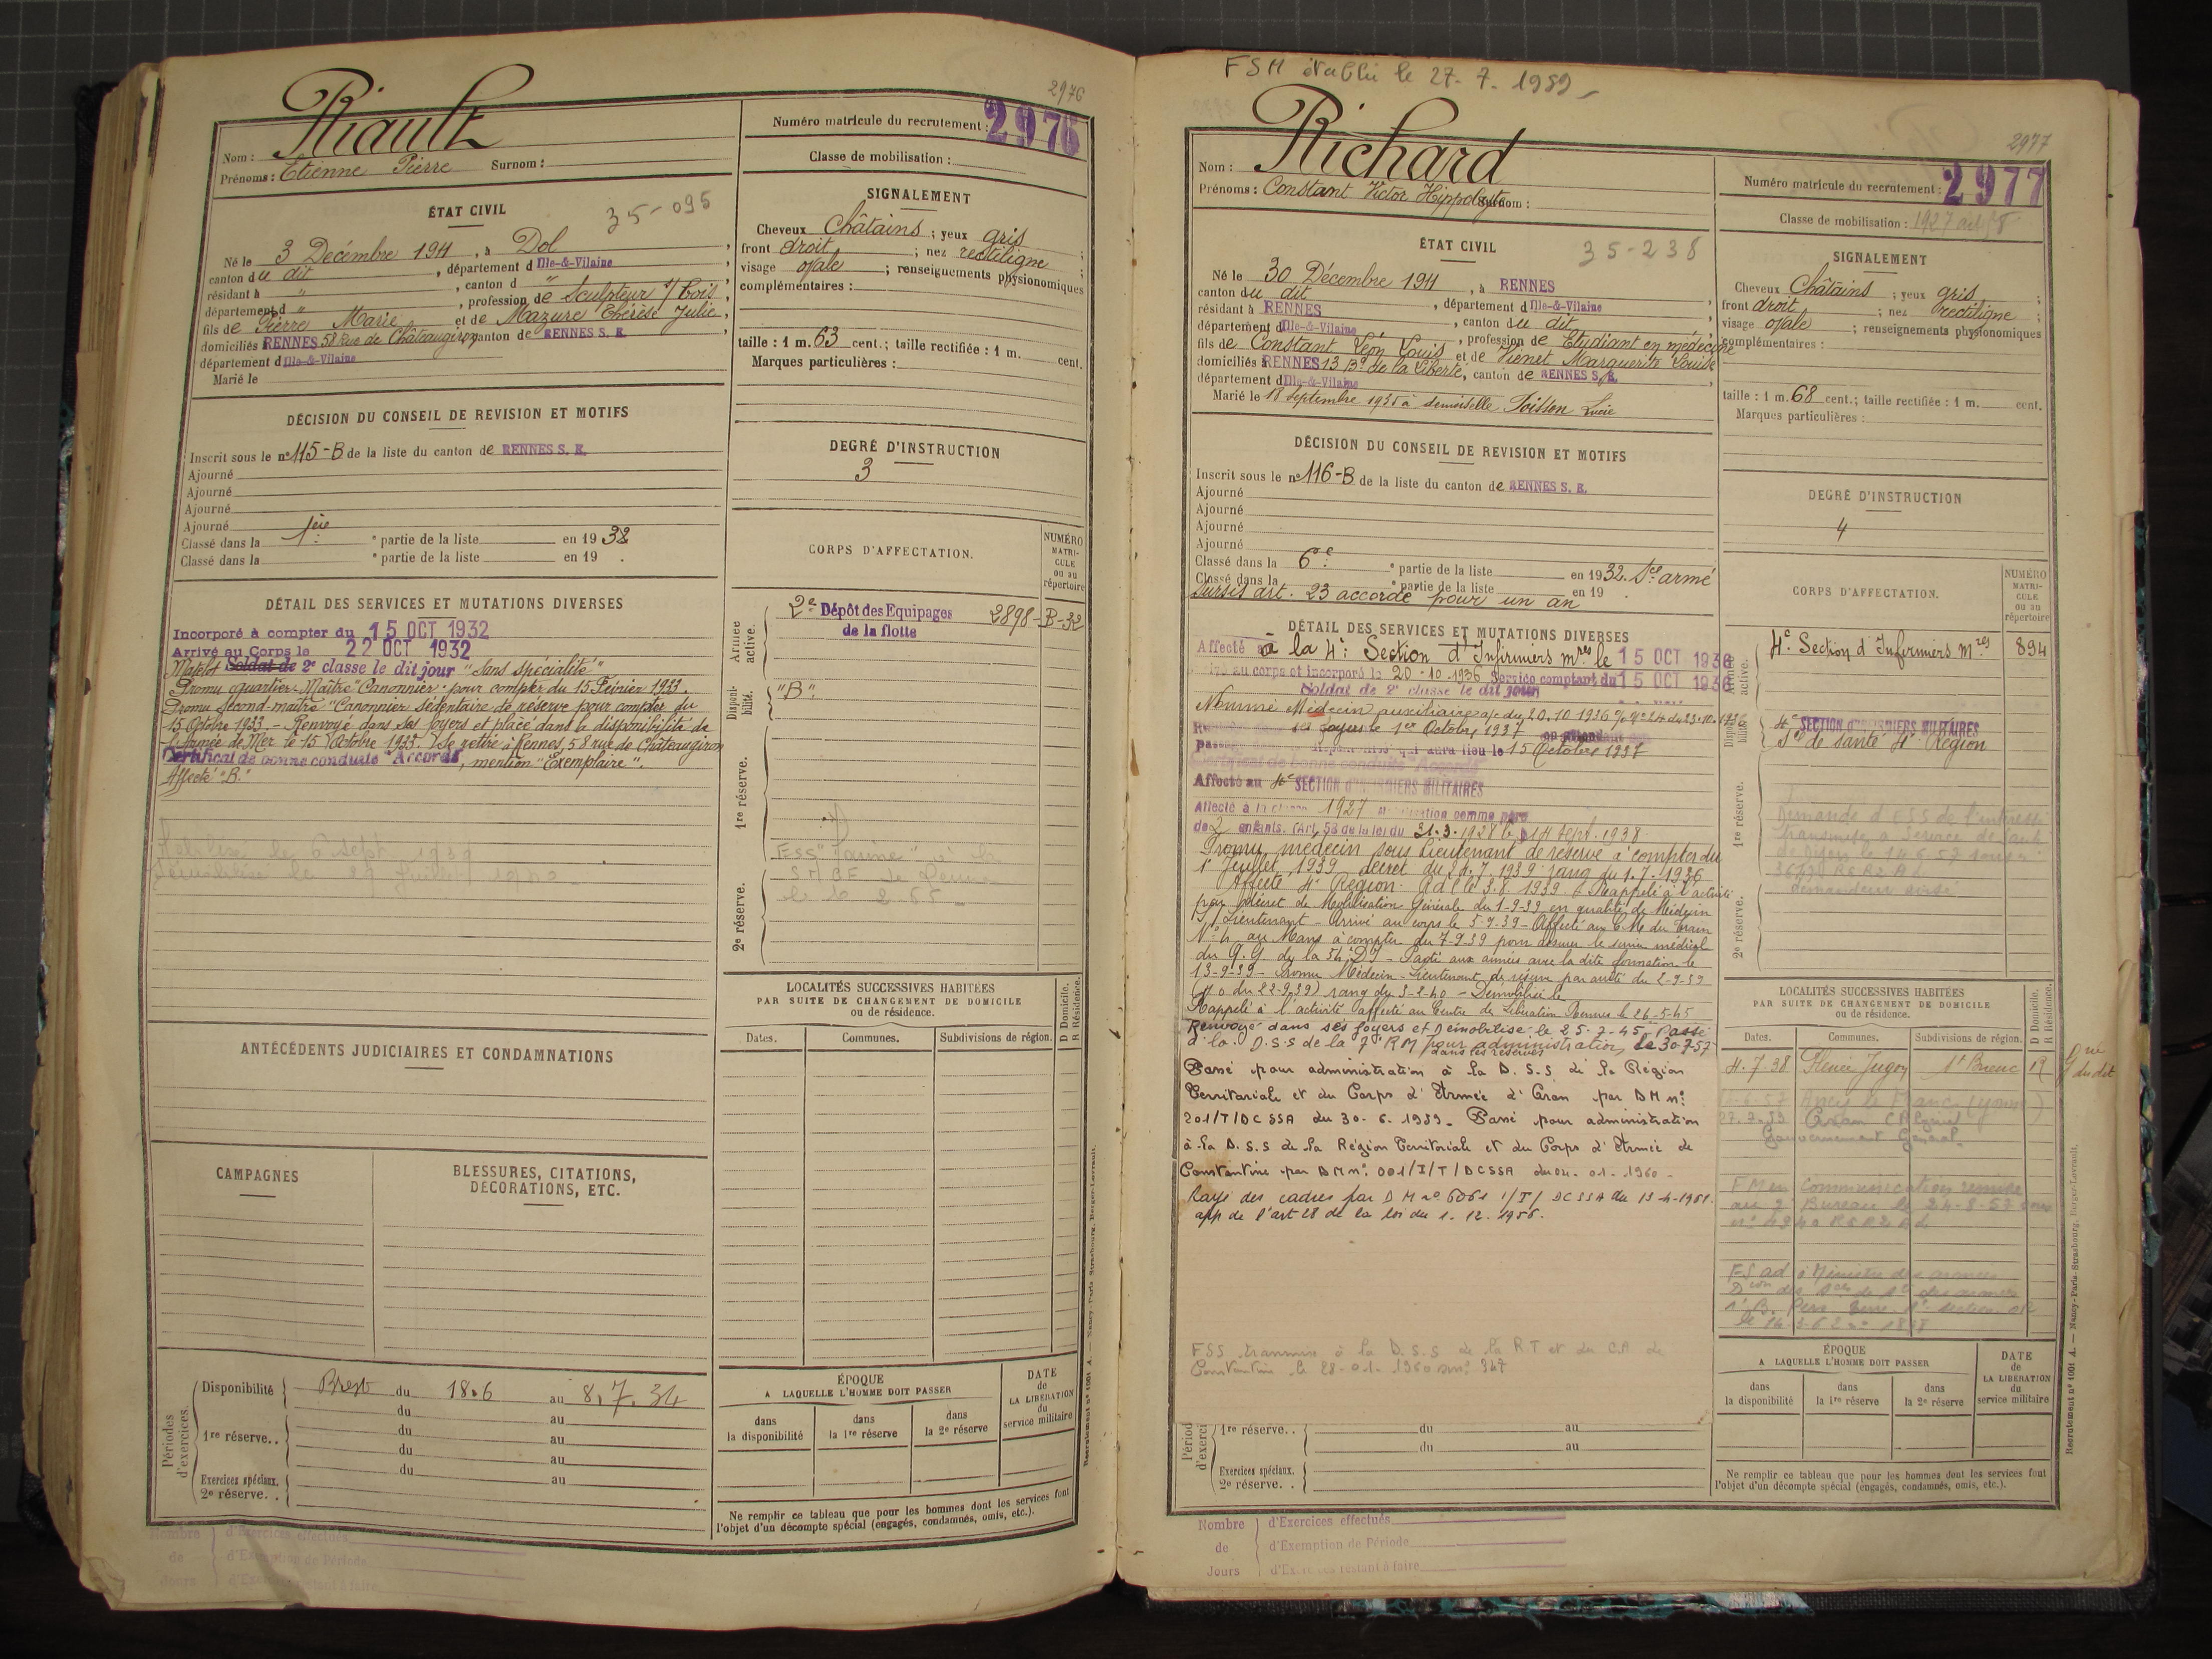 2976
Riault
Nom :
Prénoms : Etienne Pierre Surnom :
Numéro matricule du recrutement : 2976
Classe de mobilisation :
ÉTAT CIVIL
35-095
Né le 3 Décembre 1911, à Dol
canton du dit, département d Ille-&-Vilaine
résidant à " , canton d "
département d " , profession de Sculpteur s/ bois,
fils de Pierre Marie et de Mazure Thérèse Julie,
domiciliés à RENNES 58 Rue de Châteaugiron canton de RENNES S. E.
département d Ille-&-Vilaine
Marié le
SIGNALEMENT
Cheveux Châtains ; yeux gris
front droit ; nez rectiligne ;
visage ovale ; renseignements physionomiques
complémentaires :
taille : 1 m. 63 cent.; taille rectifiée : 1 m. cent.
Marques particulières :
DÉCISION DU CONSEIL DE REVISION ET MOTIFS
Inscrit sous le n° 115-B de la liste du canton de RENNES S. E.
Ajourné
Ajourné
Ajourné
Ajourné
Classé dans la 1ère partie de la liste en 1932
Classé dans la e partie de la liste en 19 .
DEGRÉ D'INSTRUCTION
3
DÉTAIL DES SERVICES ET MUTATIONS DIVERSES
Incorporé à compter du 15 OCT 1932
Arrivé au Corps le 22 OCT 1932
Matelot Soldat de 2e classe le dit jour "Sans spécialité"
Promu quartier-Maître Canonnier pour compter du 15 Février 1933.
Promu second-maître "Canonnier sédentaire de réserve pour compter du
15 Octobre 1933. - Renvoyé dans ses foyers et placé dans la disponibilité de
l'Armée de Mer le 15 Octobre 1933. Se retire à Rennes, 58 rue de Châteaugiron
Certificat de bonne conduite "Accordé", mention "Exemplaire".
Affecté "B."
le 6 sept 1939
Démobilisé le 29 Juillet 1940
CORPS D'AFFECTATION.
NUMÉRO
MATRI-
CULE
ou au
répertoire
Armée active.
2e Dépôt des Equipages 2898-B-32
de la flotte
Disponi-
bilité.
"B".
1re réserve.
FSS "Jaune" à la
2e réserve.
ANTÉCÉDENTS JUDICIAIRES ET CONDAMNATIONS
CAMPAGNES
BLESSURES, CITATIONS,
DÉCORATIONS, ETC.
LOCALITÉS SUCCESSIVES HABITÉES
PAR SUITE DE CHANGEMENT DE DOMICILE
ou de résidence.
D Domicile.
R Résidence.
Dates.
Communes.
Subdivisions de région.
Périodes
d'exercices.
Disponibilité Brest du 18.6 au 8.7.34
du au
1re réserve.. du au
du au
Exercices spéciaux. du au
2e réserve. .
ÉPOQUE
A LAQUELLE L'HOMME DOIT PASSER
dans
la disponibilité
dans
la 1re réserve
dans
la 2e réserve
DATE
de
LA LIBÉRATION
du
service militaire
Ne remplir ce tableau que pour les hommes dont les services font
l'objet d'un décompte spécial (engagés, condamnés, omis, etc.).
Recrutement n° 1001 A. — Nancy-Paris-Strasbourg, Berger-Levrault.
Nombre d'Exercices effectués
de d'Exemption de Période
Jours d'Exercices restant à faire
FSM établie le 27-7-1959 -
2977
Richard
Nom :
Prénoms : Constant Victor Hippolyte Surnom :
Numéro matricule du recrutement : 2977
Classe de mobilisation : 1927
ÉTAT CIVIL
35-238
Né le 30 Décembre 1911, à RENNES
canton du dit, département d Ille-&-Vilaine
résidant à RENNES, canton du dit
département d Ille-&-Vilaine, profession de Etudiant en médecine
fils de Constant Léon Louis et de Vienet Marguerite Louise
domiciliés à RENNES 13 Bd de la Liberté, canton de RENNES S. E.
département d Ille-&-Vilaine
Marié le 18 Septembre 1935 à demoiselle Poisson Lucie
SIGNALEMENT
Cheveux Châtains ; yeux gris ;
front droit ; nez rectiligne ;
visage ovale ; renseignements physionomiques
complémentaires :
taille : 1 m. 68 cent.; taille rectifiée : 1 m. cent.
Marques particulières :
DÉCISION DU CONSEIL DE REVISION ET MOTIFS
Inscrit sous le n° 116-B de la liste du canton de RENNES S. E.
Ajourné
Ajourné
Ajourné
Ajourné
Classé dans la 6e partie de la liste en 1932. Sce armé
Classé dans la e partie de la liste en 19 .
Sursis art. 23 accordé pour un an
DEGRÉ D'INSTRUCTION
4
DÉTAIL DES SERVICES ET MUTATIONS DIVERSES
Affecté à la 4e Section d'Infirmiers mres le 15 OCT 1936
au corps et incorporé le 20-10-1936 Service comptant du 15 OCT 1936
Soldat de 2e classe le dit jour
Nommé Médecin auxiliaire a/c du 20.10 1936
ses foyers le 1er Octobre 1937
qui aura lieu le 15 Octobre 1937
Certificat de bonne conduite "Accordé"
Affecté au 4e SECTION D'INFIRMIERS MILITAIRES
Affecté à la classe 1927 mobilisation comme père
de 2 enfants. (Art. 58 de la loi du 31-3-1928 le 14 Sept. 1938.
Promu médecin sous lieutenant de réserve à compter du
1er Juillet 1939 décret du 24.7.1939 rang du 1.7.1936
Affecté 4e Région 3.8.1939 Rappelé à l'activité
par décret de Mobilisation Générale du 1-9-39 en qualité de Médecin
S/ Lieutenant - Arrivé au corps le 5-9-39 - Affecté au C M du Train
N° 4 au Mans à compter du 7-9-39 pour assurer le service médical
du Q.G. de la 54e D.I - Parti aux armées avec la dite formation le
13-9-39 - Promu Médecin-Lieutenant de réserve par
(J o du 22-9-39) rang du 3-2-40 - Démobilisé le
Rappelé à l'activité affecté au Centre de Libération Rennes le 26-5-45
Renvoyé dans ses foyers et démobilisé le 25-7-45. Passé
dans les réserves
à la D.S.S de la 7e RM pour administration, le 30-7-57
Passé pour administration à la D.S.S de la Région
Territoriale et du Corps d'Armée d'Oran par DM n°
201/T/DCSSA du 30-6-1959 - Passé pour administration
à la D.S.S de la Région Territoriale et du Corps d'Armée de
Constantine par DM n° 001/I/T/DCSSA du 04-01-1960 -
Rayé des cadres par D M n° 6061 1/T/ DCSSA du 13-4-1961.
app de l'art 28 de la loi du 1.12.1956.
FSS transmise à la D.S.S de la R.T et du C.A de
Constantine le 28-01-1960 sous n° 347
CORPS D'AFFECTATION.
NUMÉRO
MATRI-
CULE
ou au
répertoire
active.
4e Section d'Infirmiers Mres 894
4e SECTION D'INFIRMIERS MILITAIRES
Sce de Santé 4e Région
1re réserve.
Demande d'ESS de l'intéressé
transmise à Service de Santé
2e réserve.
LOCALITÉS SUCCESSIVES HABITÉES
PAR SUITE DE CHANGEMENT DE DOMICILE
ou de résidence.
D Domicile.
R Résidence.
Dates.
Communes.
Subdivisions de région.
4.7.38 Plénée Jugon St Brieuc R
Ancy le Franc (Yonne)
27-7-59 Oran (Algérie)
Gouvernement Général
FM en communication remise
au 2e Bureau le 24-8-57 sous
ÉPOQUE
A LAQUELLE L'HOMME DOIT PASSER
dans
la disponibilité
dans
la 1re réserve
dans
la 2e réserve
DATE
de
LA LIBÉRATION
du
service militaire
1re réserve. . du au
du au
Exercices spéciaux.
2e réserve. .
Ne remplir ce tableau que pour les hommes dont les services font
l'objet d'un décompte spécial (engagés, condamnés, omis, etc.).
Recrutement n° 1001 A. — Nancy-Paris-Strasbourg, Berger-Levrault.
Nombre d'Exercices effectués
de d'Exemption de Période
Jours d'Exercices restant à faire